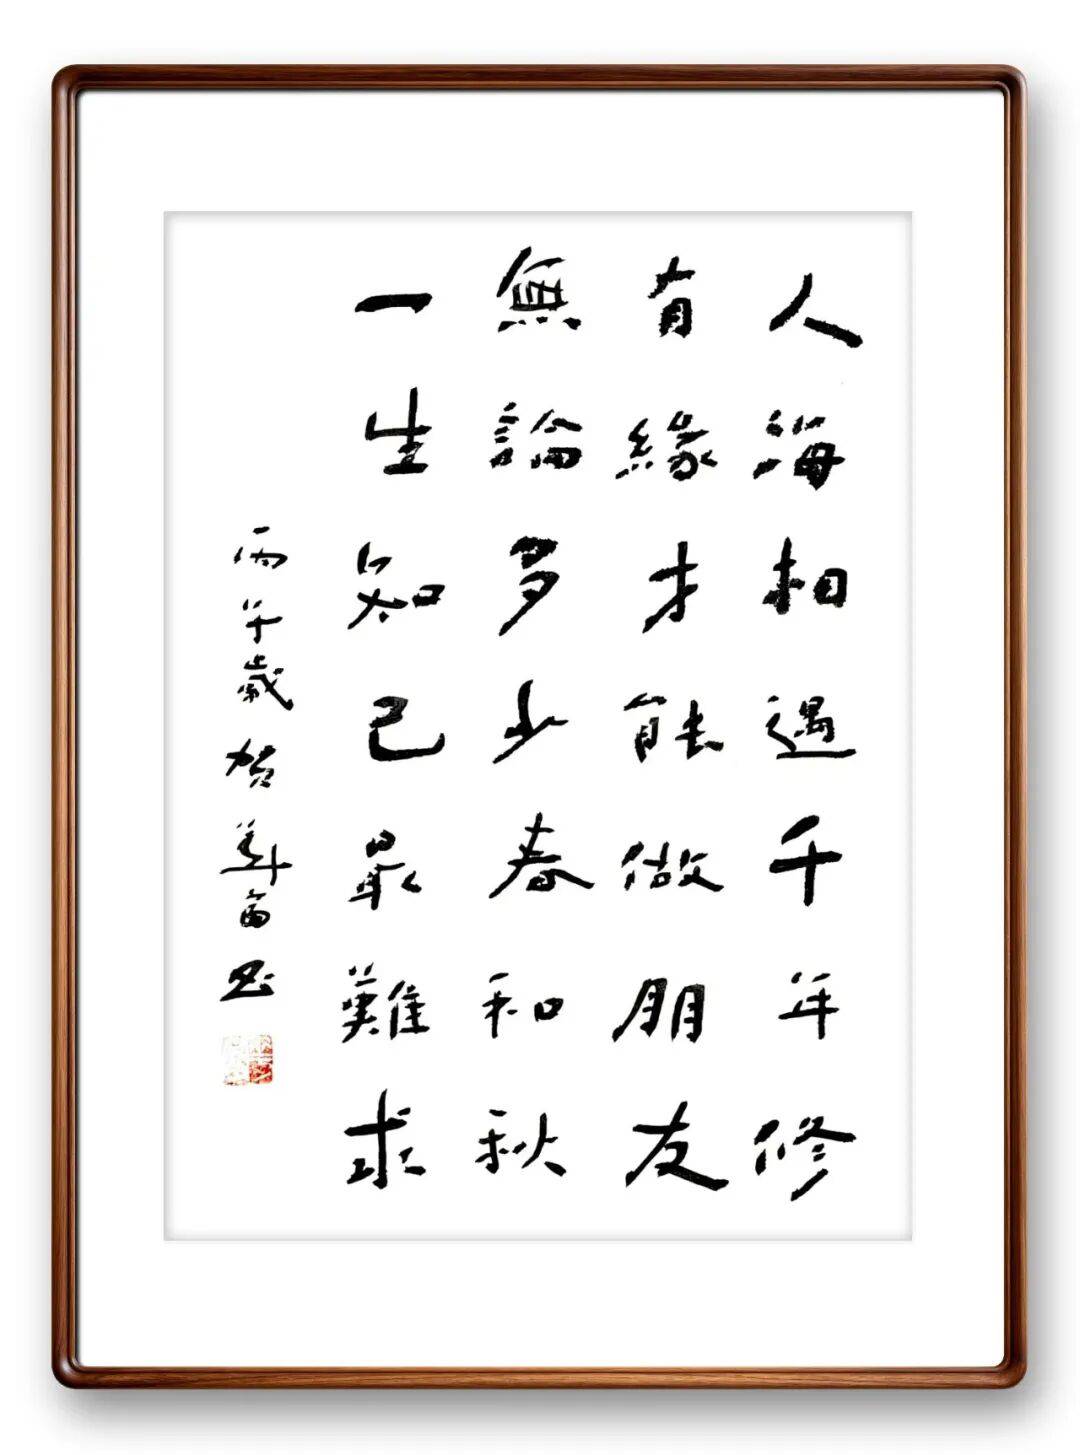 人海相遇千年修
有緣才能做朋友
無論多少春和秋
一生知己最難求
丙午歲賀